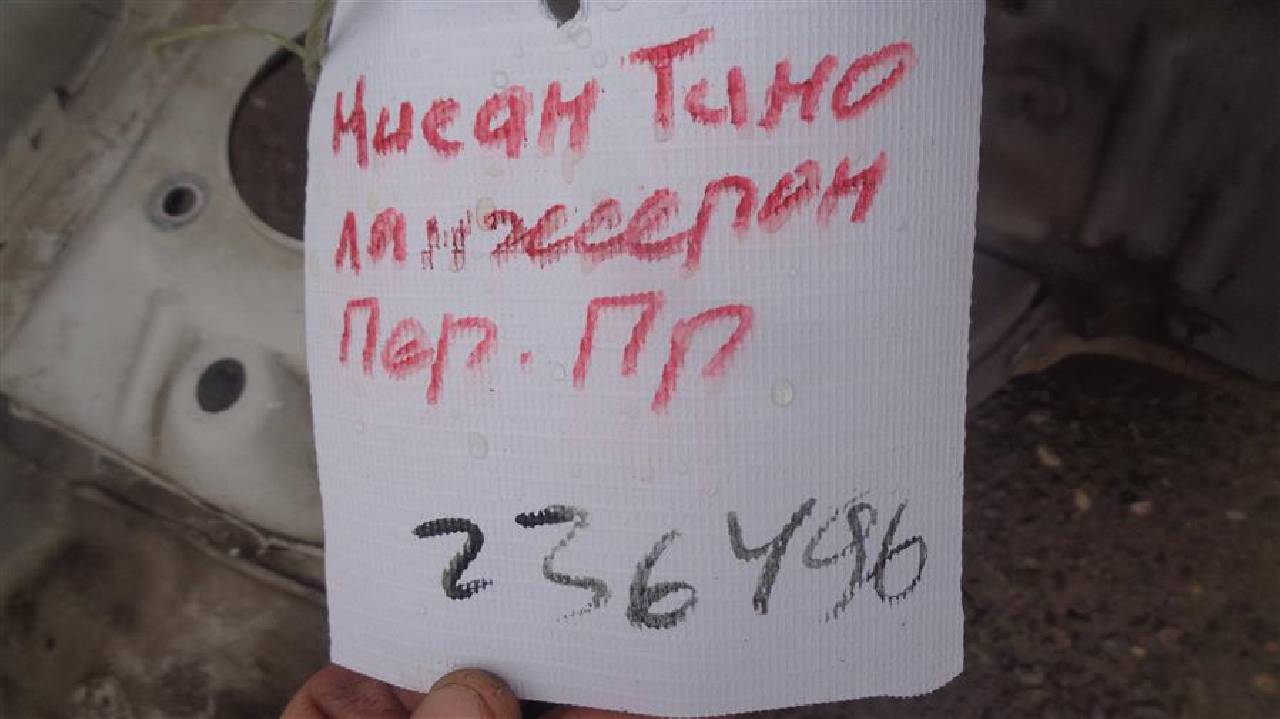 Нисан Тино
лянжерон
Пер. Пр
236496